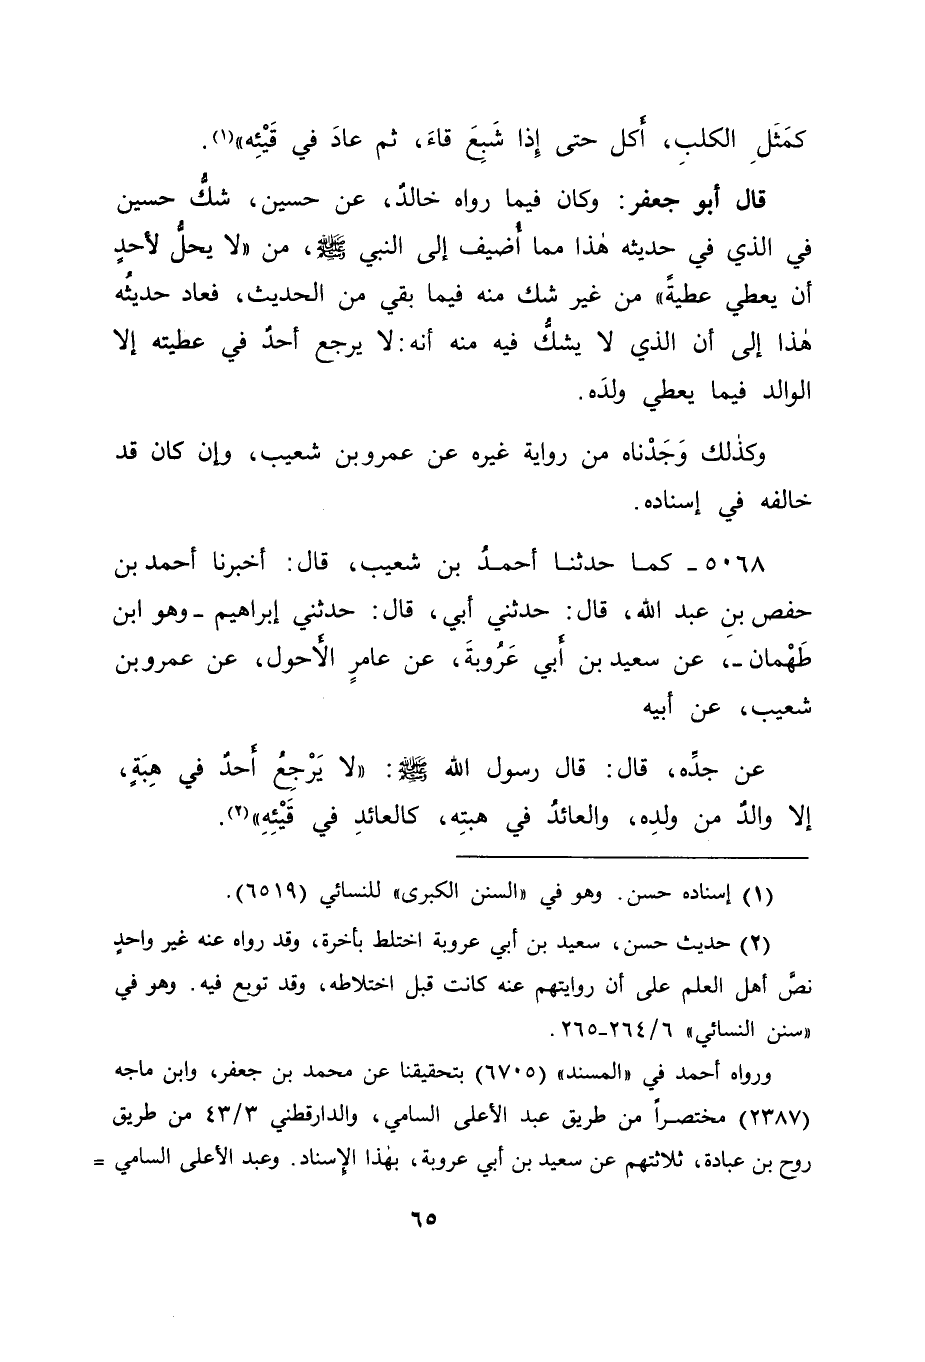 كمَثَلِ الكلبِ، أَكل حتى إِذا شَبِعَ قاءَ، ثم عادَ في قَيْئِه»(١).
قال أبو جعفر: وكان فيما رواه خالدٌ، عن حسين، شكُّ حسين
في الذي في حديثه هٰذا مما أُضيف إلى النبي ﷺ، من «لا يحلُّ لأحدٍ
أن يعطي عطيةً» من غير شك منه فيما بقي من الحديث، فعاد حديثُه
هٰذا إلى أن الذي لا يشكُّ فيه منه أنه: لا يرجع أحدٌ في عطيته إلا
الوالد فيما يعطي ولدَه.
وكذٰلك وَجَدْناه من رواية غيره عن عمرو بن شعيب، وإن كان قد
خالفه في إسناده.
٥٠٦٨ ـ كما حدثنا أحمدُ بن شعيب، قال: أخبرنا أحمد بن
حفص بنِ عبد الله، قال: حدثني أبي، قال: حدثني إبراهيم ـ وهو ابن
طَهْمان ـ، عن سعيد بن أَبي عَرُوبةَ، عن عامرٍ الأَحول، عن عمرو بن
شعيب، عن أبيه
عن جدِّه، قال: قال رسول الله ﷺ: «لا يَرْجِعُ أَحدٌ في هِبَةٍ،
إلا والدٌ من ولدِه، والعائدُ في هبتِه، كالعائدِ في قَيْئِهِ»(٢).
(١) إسناده حسن. وهو في «السنن الكبرى» للنسائي (٦٥١٩).
(٢) حديث حسن، سعيد بن أبي عروبة اختلط بأخرة، وقد رواه عنه غير واحدٍ
نصَّ أهل العلم على أن روايتهم عنه كانت قبل اختلاطه، وقد توبع فيه. وهو في
«سنن النسائي» ٢٦٤/٦ـ٢٦٥.
ورواه أحمد في «المسند» (٦٧٠٥) بتحقيقنا عن محمد بن جعفر، وابن ماجه
(٢٣٨٧) مختصراً من طريق عبد الأعلى السامي، والدارقطني ٤٣/٣ من طريق
روح بن عبادة، ثلاثتهم عن سعيد بن أبي عروبة، بهٰذا الإسناد. وعبد الأعلى السامي =
٦٥